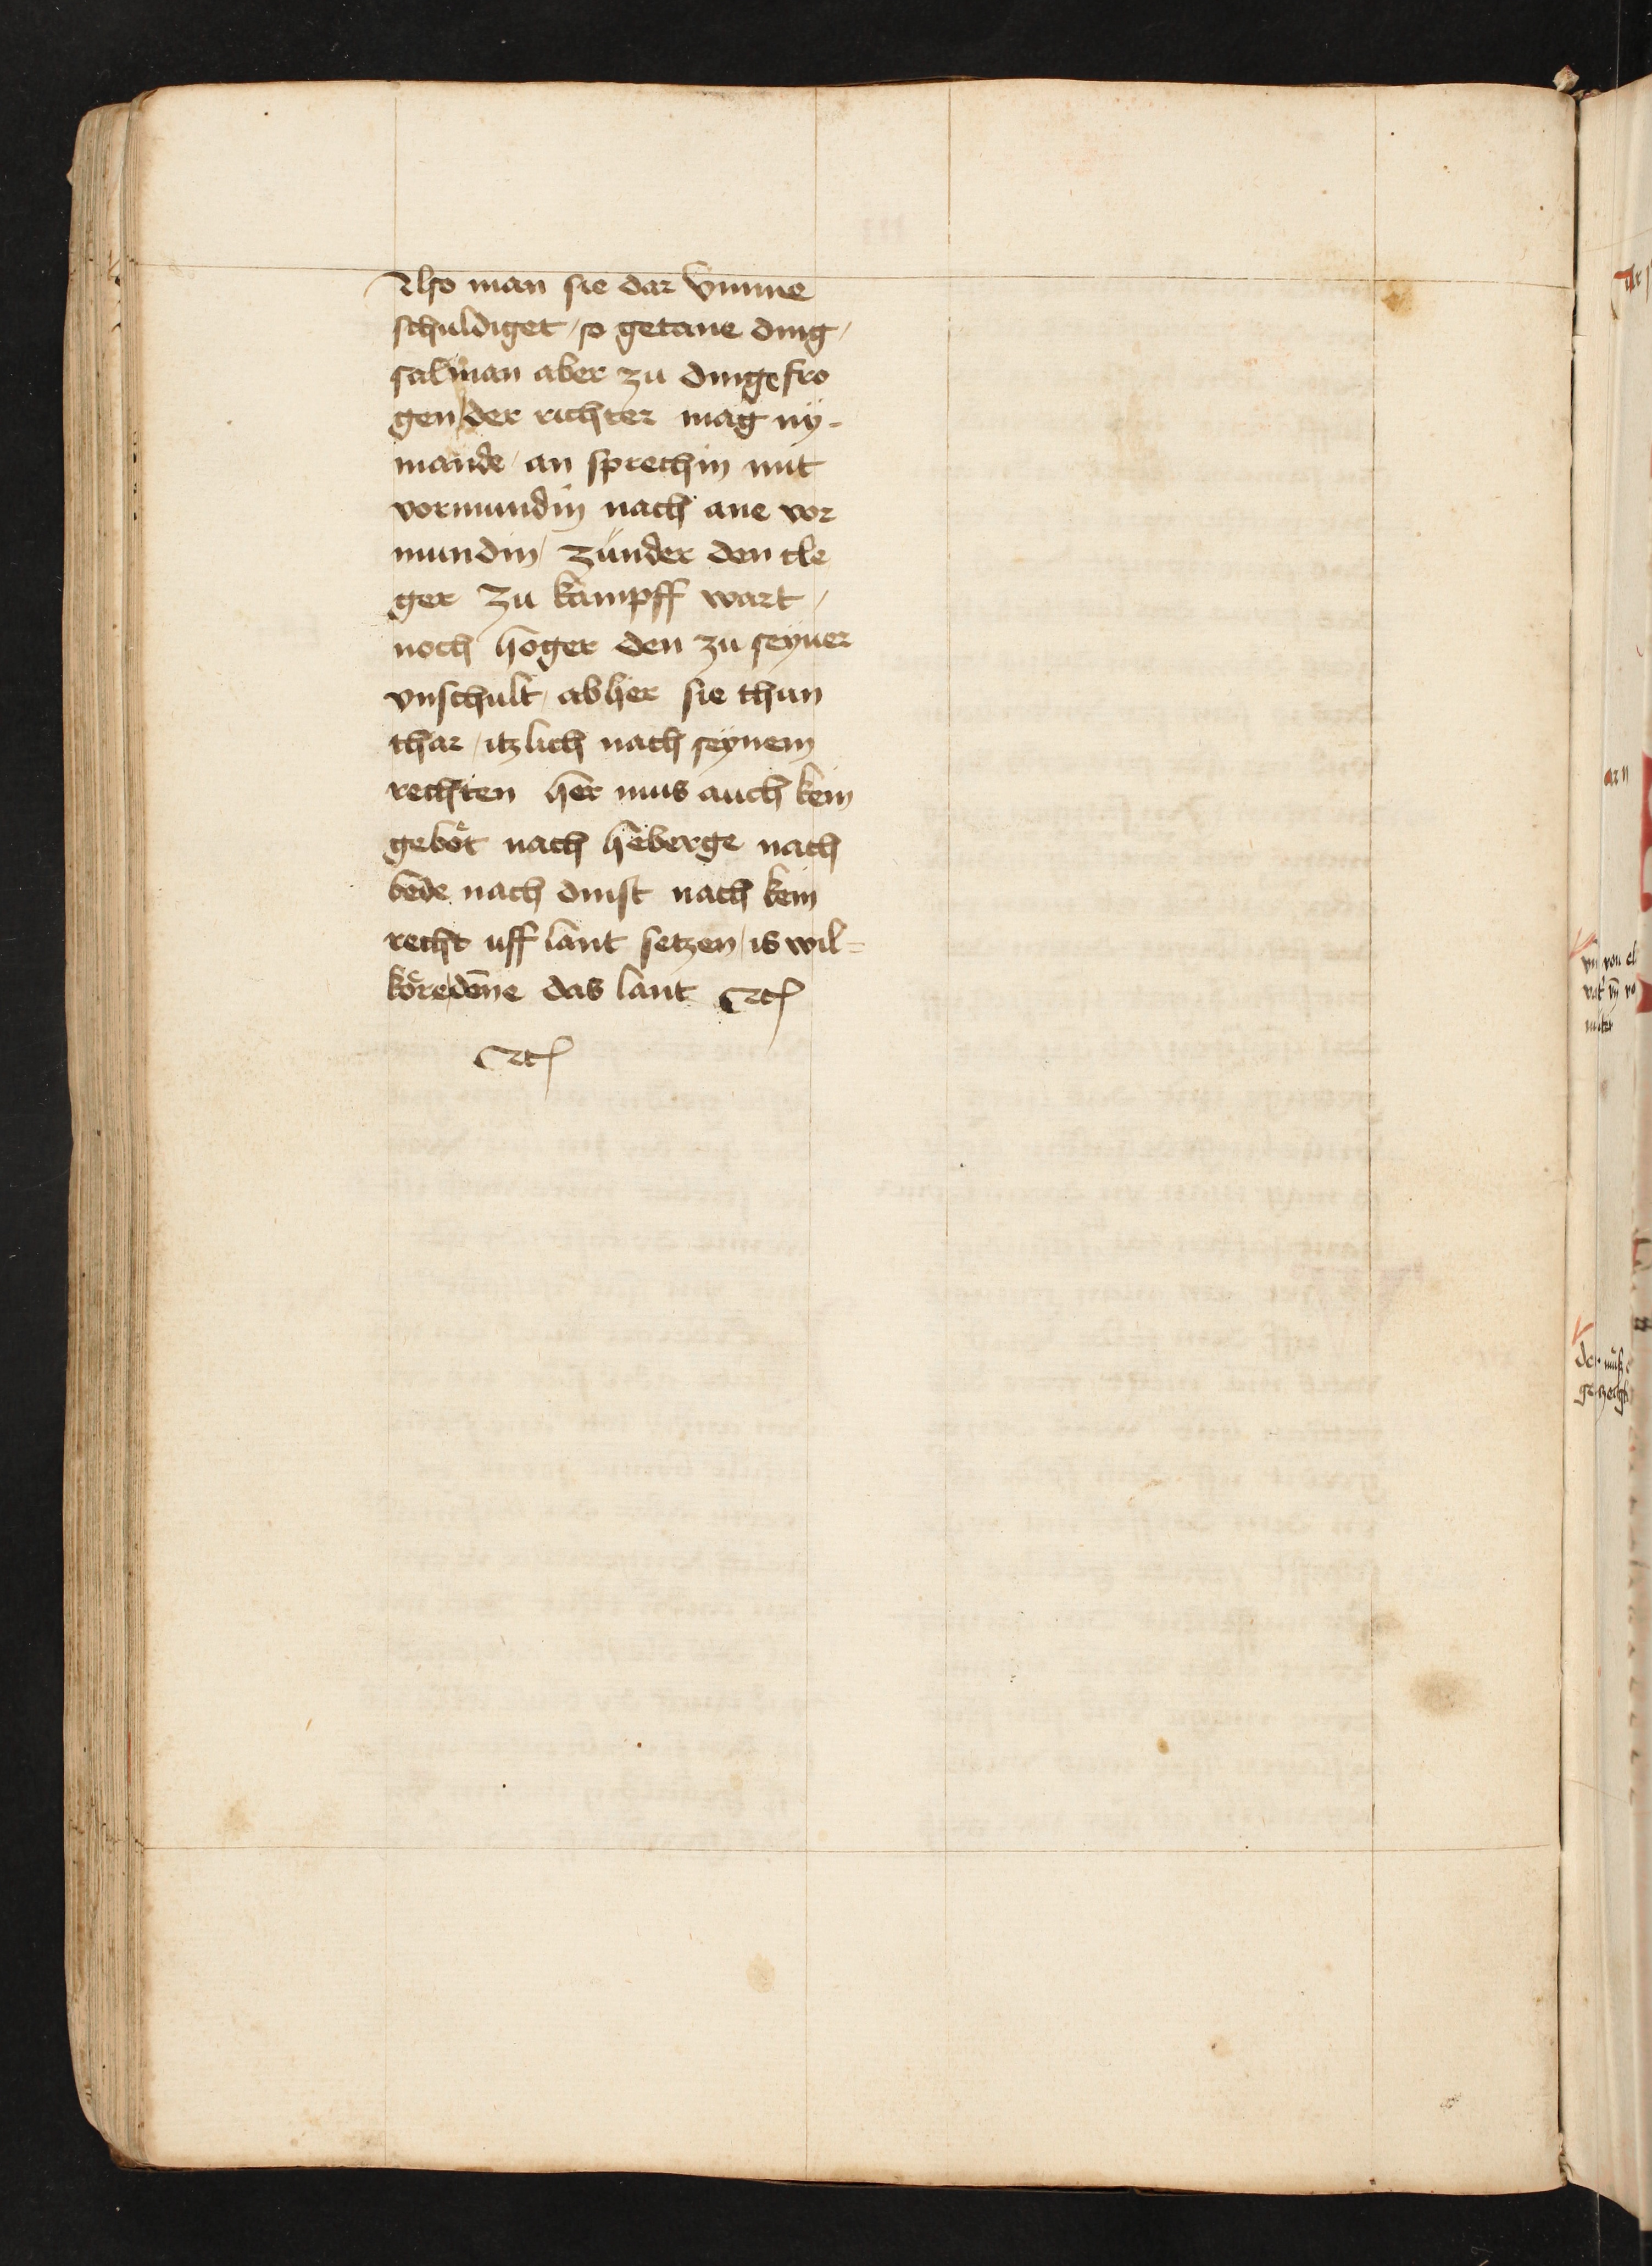 Also man sie dar vmme
schuldiget / so getane ding /
salman aber zu dinge fro
gen / der richter mag ny-
mande / an sprechin mit
vormundin nach ane vor
mundin / zunder den cle
ger zu kampff wart /
noch hoger den zu seyner
vnschult / abher sie thun
thar / itzlich nach seynem
rechten her mus auch kein
gebot nach heberge nach
bede nach dinst nach kein
recht uff lant setzen / is wil=
kore denne das lant Etc
Etc